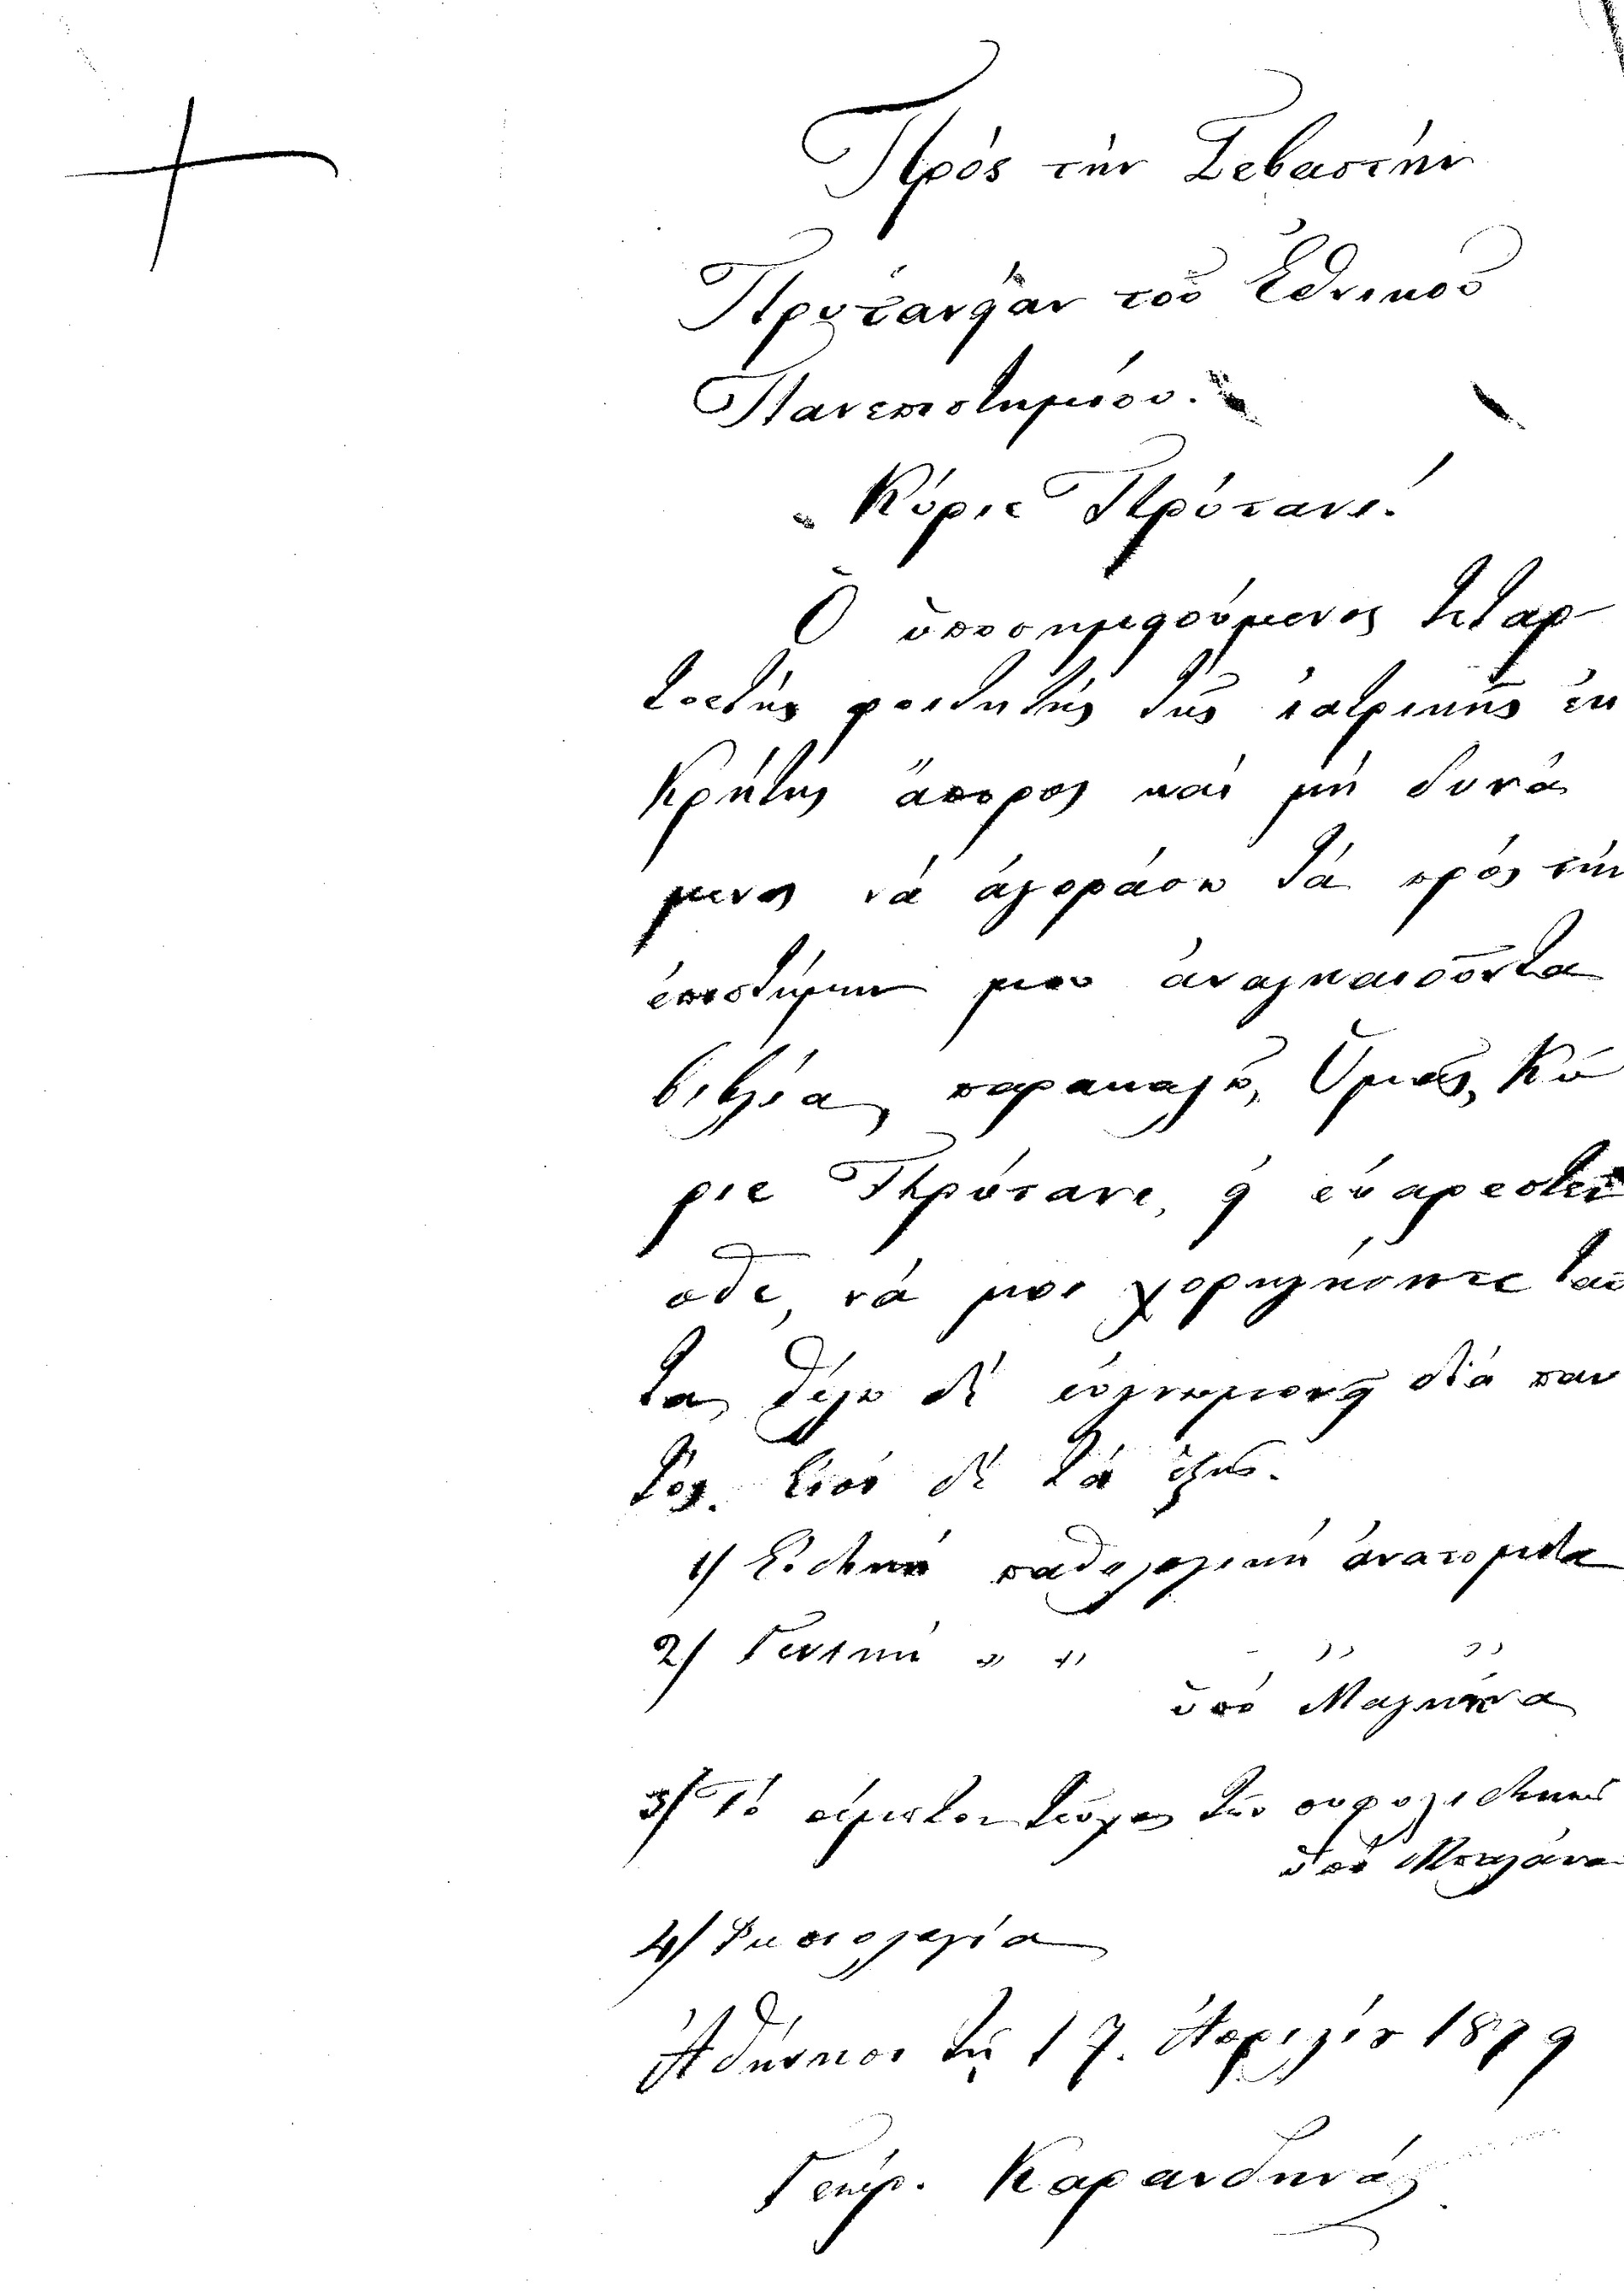 Πρός τήν Σεβαστήν
Πρυτανείαν τοῦ Ἐθνικοῦ
Πανεπιστημίου.
Κύριε Πρύτανι!
Ὁ ὑποσημειούμενος τεταρ
τοετής φοιτητής τῆς ἰατρικῆς ἐκ
Κρήτης ἄπορος καί μή δυνά
μενος νά ἀγοράσω τά πρός τήν
ἐπιστήμην μου ἀναγκαιοῦντα
βιβλία, παρακαλῶ, Ὑμᾶς, Κύ
ριε Πρύτανι, εἰ εὐαρεστεῖ
σθε, νά μοι χορηγήσητε ταῦ
τα, θέλω δέ εὐγνωμονεῖ διά παν
τός. Εἰσί δέ τά ἑξῆς.
1) Εἰδική παθολογική ἀνατομία
2) Γενική " " " "
ὑπό Μαγκάκα
3) Τό πέμπτον τεῦχος τῆς
ὑπό
4) Φυσιολογία
Ἀθήνησι τῇ 17. Ἀπριλίου 1879
Γεώρ. Καρανδινάς